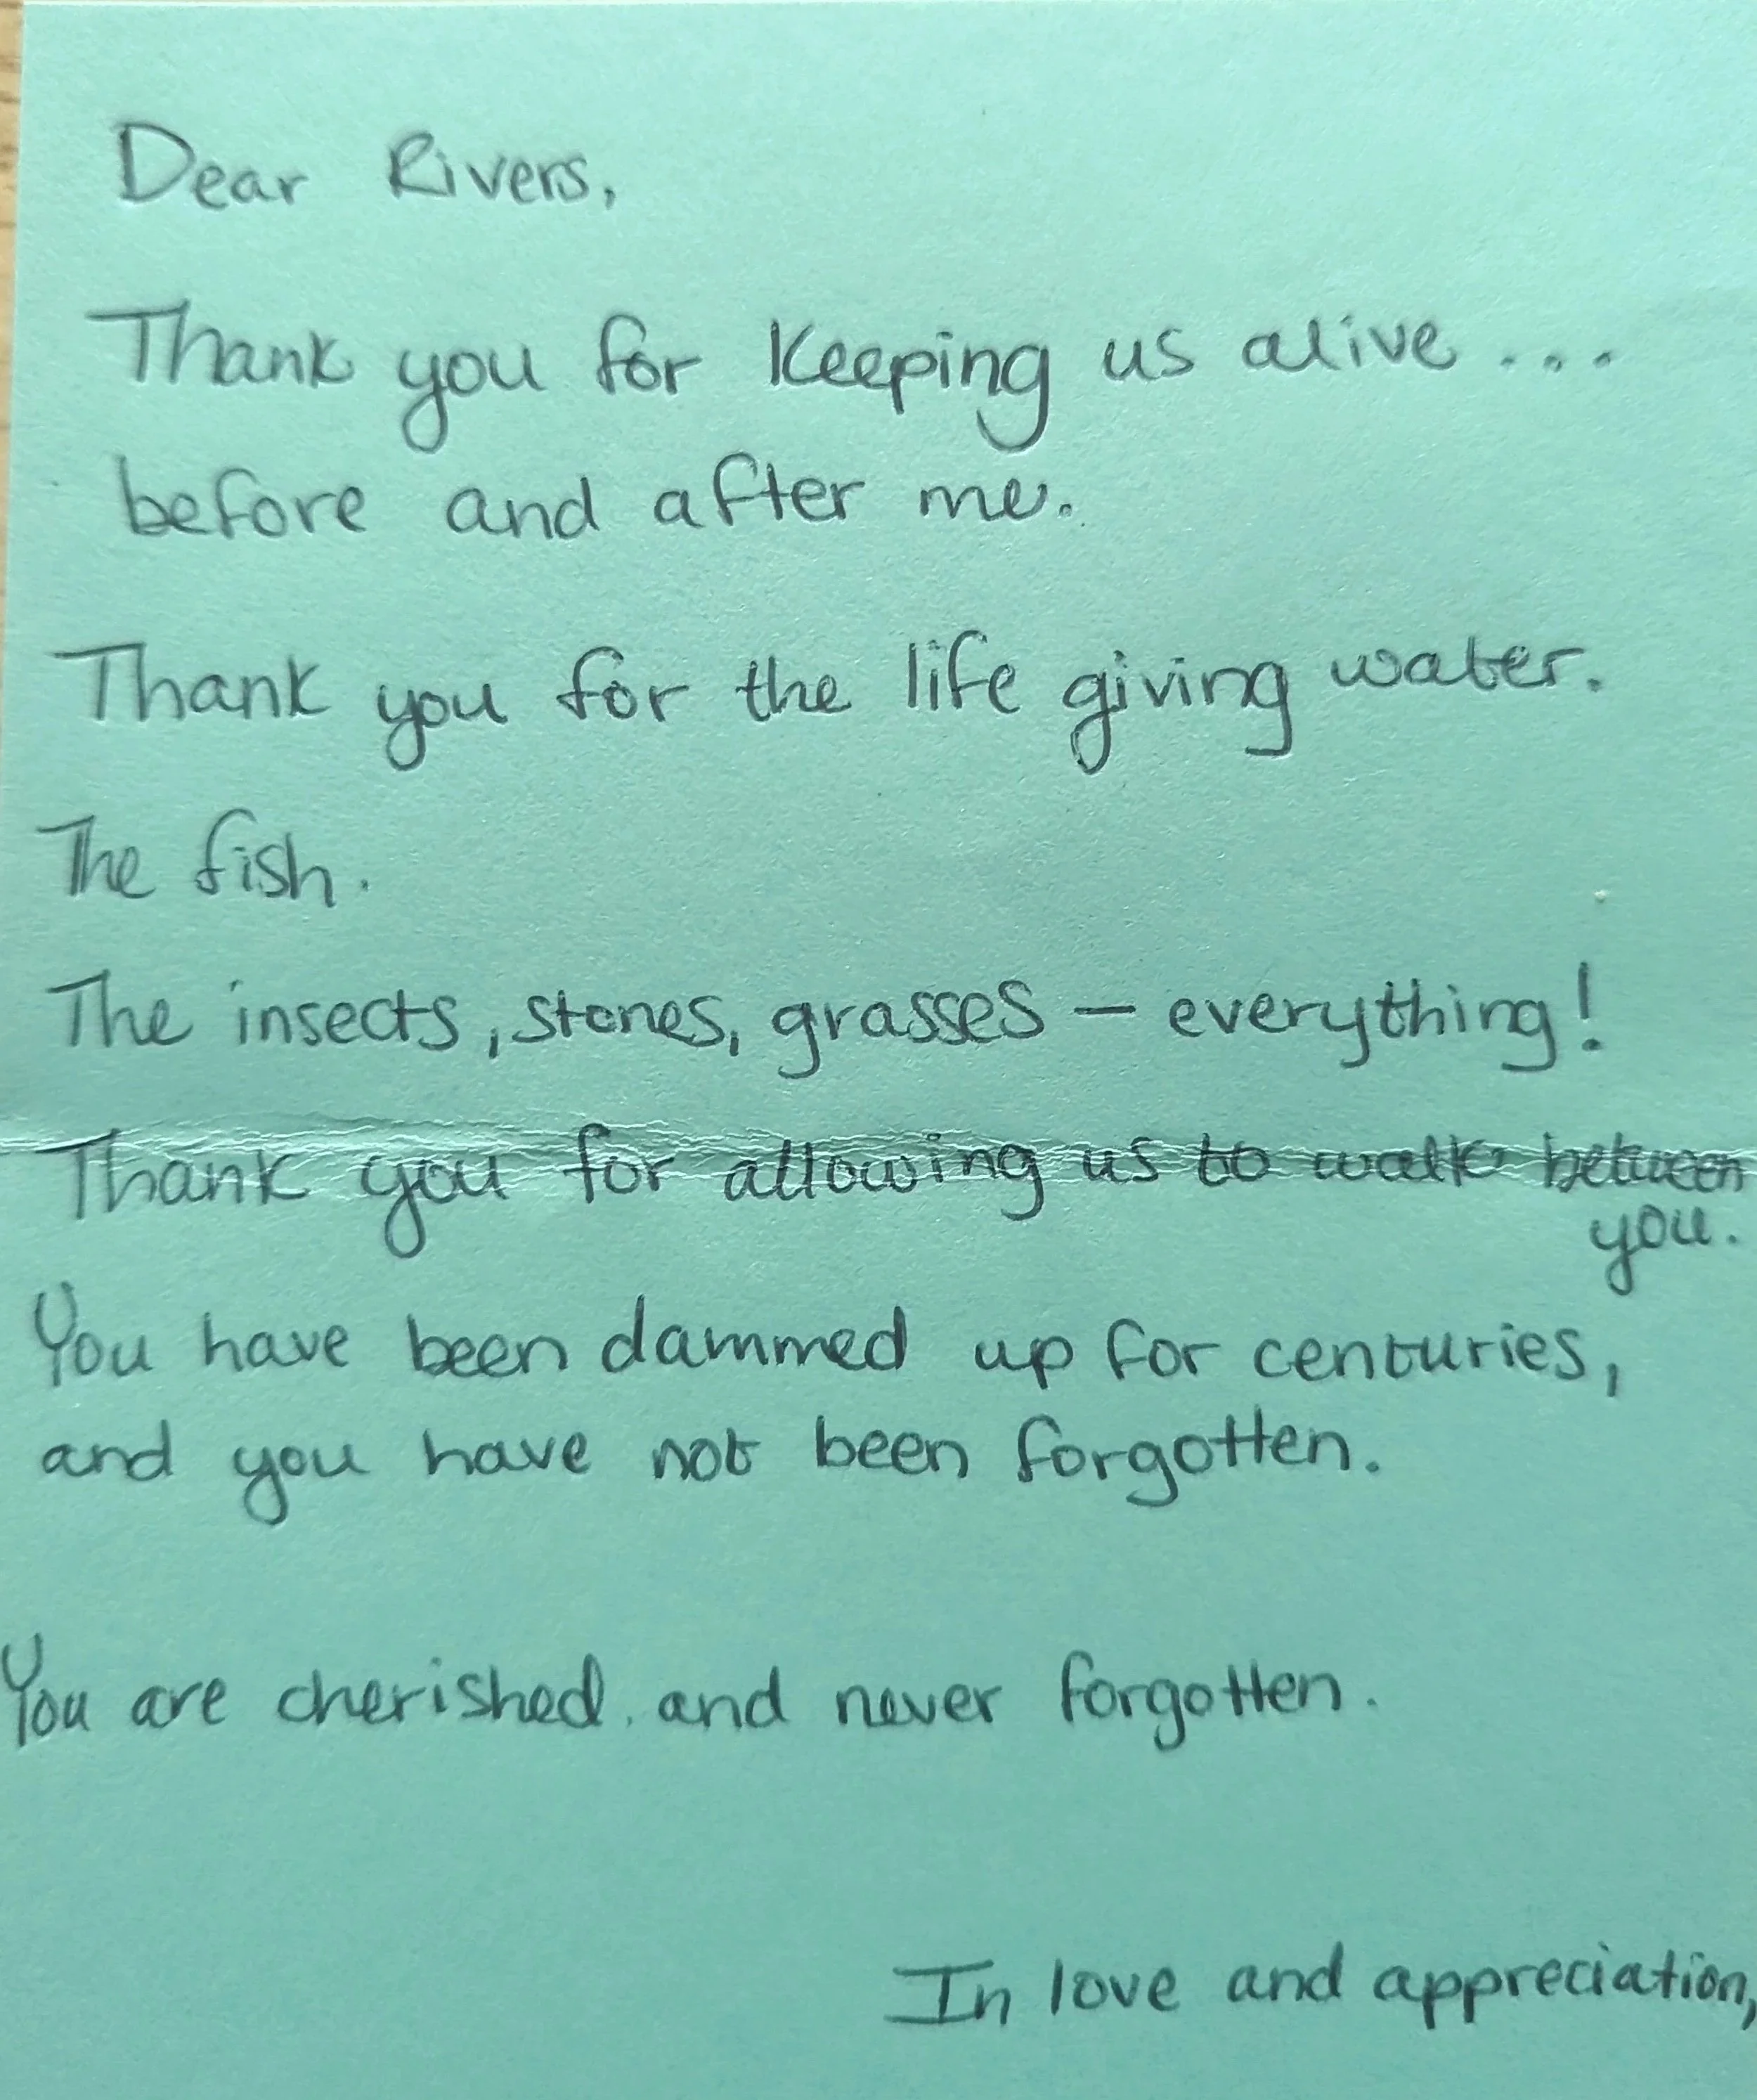 Dear Rivers,
Thank you for keeping us alive...
before and after me.
Thank you for the life giving water.
The fish.
The insects, stones, grasses – everything!
Thank you for allowing us to walk between
you.
You have been dammed up for centuries,
and you have not been forgotten.
You are cherished and never forgotten.
In love and appreciation,